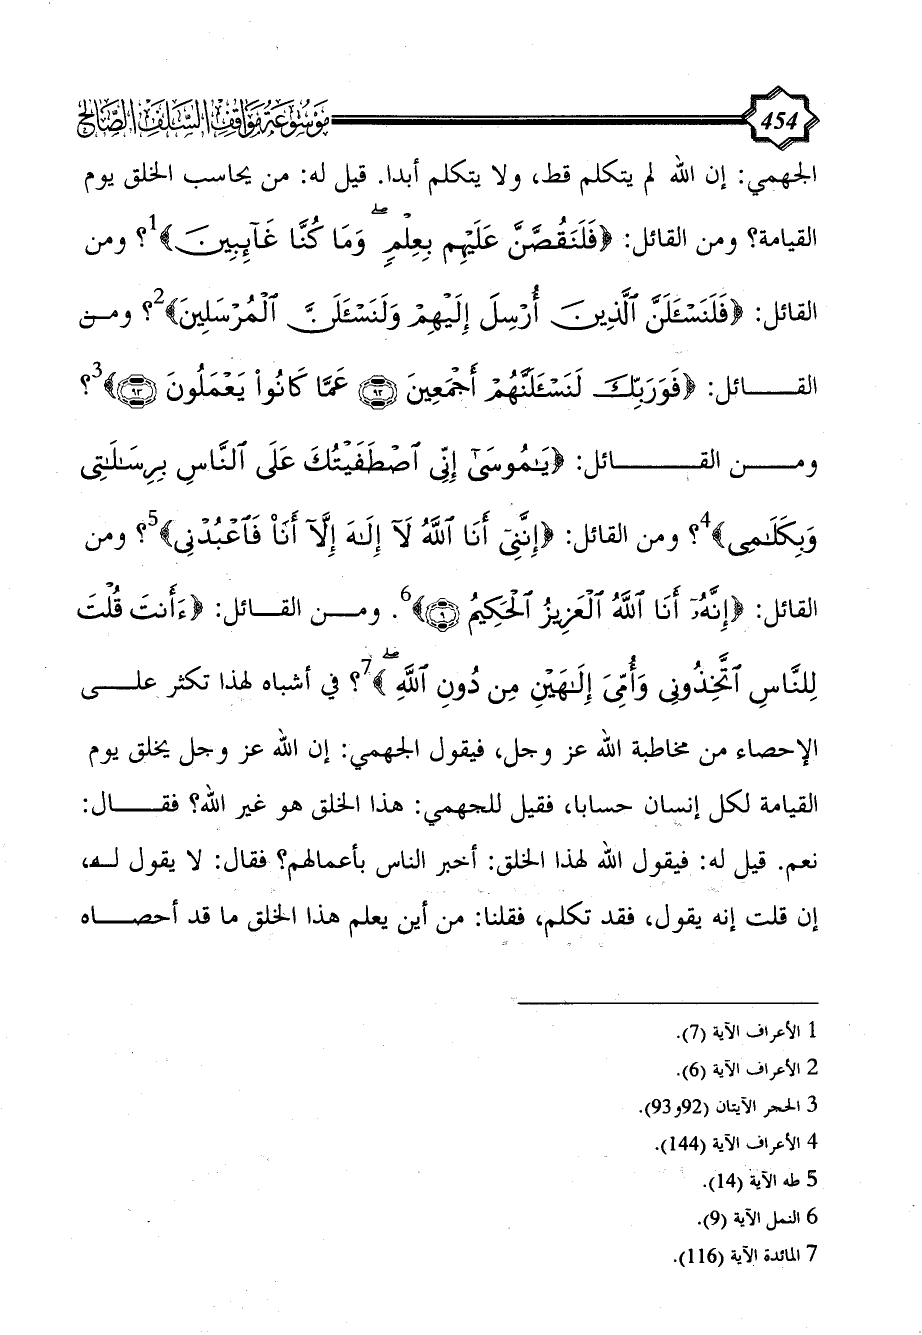 454 موسوعة مواقف السلف الصالح
الجهمي: إن الله لم يتكلم قط، ولا يتكلم أبدا. قيل له: من يحاسب الخلق يوم
القيامة؟ ومن القائل: ﴿فَلَنَقُصَّنَّ عَلَيْهِم بِعِلْمٍ ۖ وَمَا كُنَّا غَآئِبِينَ﴾1؟ ومن
القائل: ﴿فَلَنَسْـَٔلَنَّ ٱلَّذِينَ أُرْسِلَ إِلَيْهِمْ وَلَنَسْـَٔلَنَّ ٱلْمُرْسَلِينَ﴾2؟ ومن
القائل: ﴿فَوَرَبِّكَ لَنَسْـَٔلَنَّهُمْ أَجْمَعِينَ ٩٢ عَمَّا كَانُوا۟ يَعْمَلُونَ ٩٣﴾3؟
ومن القائل: ﴿يَـٰمُوسَىٰٓ إِنِّى ٱصْطَفَيْتُكَ عَلَى ٱلنَّاسِ بِرِسَـٰلَـٰتِى
وَبِكَلَـٰمِى﴾4؟ ومن القائل: ﴿إِنَّنِىٓ أَنَا ٱللَّهُ لَآ إِلَـٰهَ إِلَّآ أَنَا۠ فَٱعْبُدْنِى﴾5؟ ومن
القائل: ﴿إِنَّهُۥٓ أَنَا ٱللَّهُ ٱلْعَزِيزُ ٱلْحَكِيمُ ٩﴾6. ومن القائل: ﴿ءَأَنتَ قُلْتَ
لِلنَّاسِ ٱتَّخِذُونِى وَأُمِّىَ إِلَـٰهَيْنِ مِن دُونِ ٱللَّهِ ۖ﴾7؟ في أشباه لهذا تكثر على
الإحصاء من مخاطبة الله عز وجل، فيقول الجهمي: إن الله عز وجل يخلق يوم
القيامة لكل إنسان حسابا، فقيل للجهمي: هذا الخلق هو غير الله؟ فقال:
نعم. قيل له: فيقول الله لهذا الخلق: أخبر الناس بأعمالهم؟ فقال: لا يقول له،
إن قلت إنه يقول، فقد تكلم، فقلنا: من أين يعلم هذا الخلق ما قد أحصاه
1 الأعراف الآية (7).
2 الأعراف الآية (6).
3 الحجر الآيتان (92و93).
4 الأعراف الآية (144).
5 طه الآية (14).
6 النمل الآية (9).
7 المائدة الآية (116).